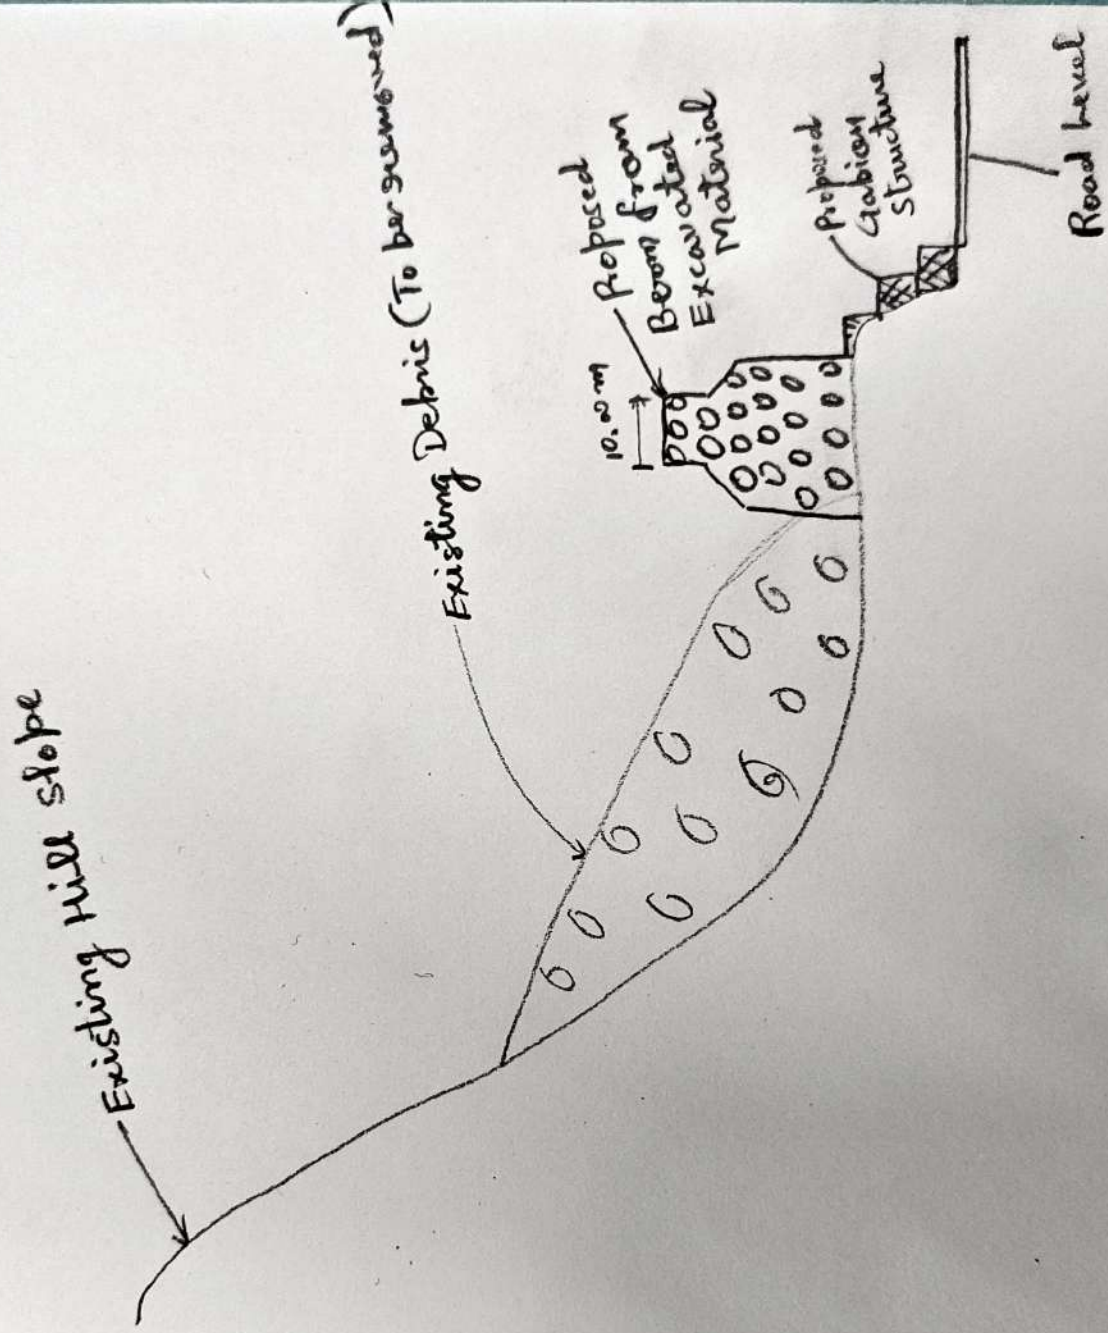 Existing Hill slope
Existing Debris (To be removed)
10.00 m
Proposed
Berm from
Excavated
Material
Proposed
Gabion
structure
Road Level